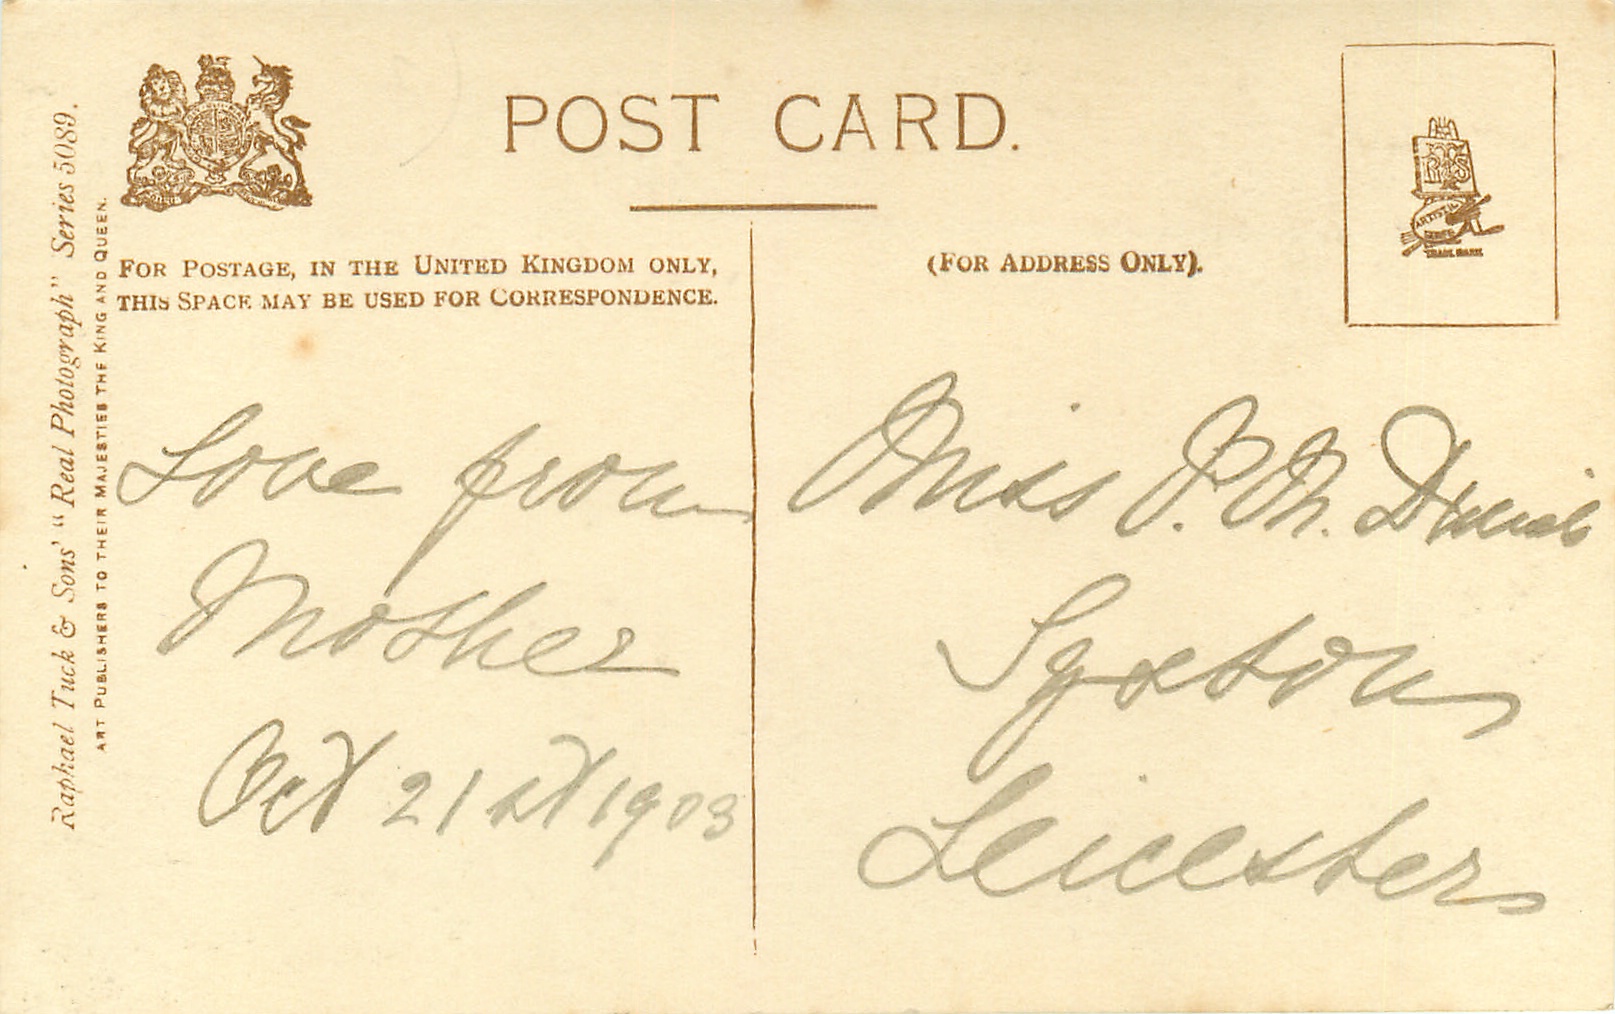 Raphael Tuck & Sons' "Real Photograph" Series 5089.
ART PUBLISHERS TO THEIR MAJESTIES THE KING AND QUEEN.
POST CARD.
FOR POSTAGE, IN THE UNITED KINGDOM ONLY,
THIS SPACE MAY BE USED FOR CORRESPONDENCE.
(FOR ADDRESS ONLY).
ARTISTIC
SERIES
TRADE MARK
Love from
Mother
Oct 21st 1903
Miss P. M.
Syston
Leicester